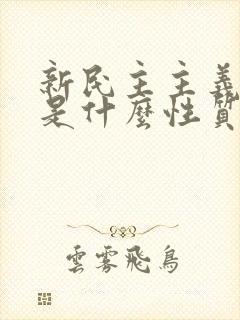 新民主主義
是什麼性質
雲雾飛鳥